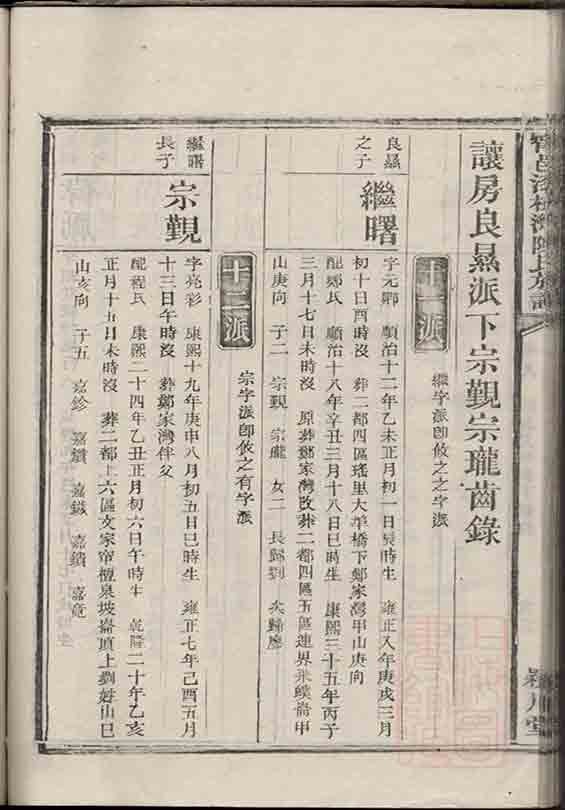 讓房良㬎派下宗覲宗瓏齒錄
十一派
繼字派卽攸之之字派
良㬎之子
繼曙
字元卿 順治十二年乙未正月初一日辰時生 雍正八年庚戌三月
初十日酉時沒 葬二都四區瑤里大羊橋下鄭家灣甲山庚向
配鄭氏 順治十八年辛丑三月十八日巳時生 康熙三十五年丙子
三月十七日未時沒 原葬鄭家灣改葬二都四區五區連界 甲
山庚向 子二 宗覲 宗瓏 女二 長歸劉 次歸應
十二派
宗字派卽攸之有字派
繼曙長子
宗覲
字亮彩 康熙十九年庚申八月初五日巳時生 雍正七年己酉五月
十三日午時沒 葬鄭家灣伴父
配程氏 康熙二十四年乙丑正月初六日午時生 乾隆二十年乙亥
正月十五日未時沒 葬二都上六區文家 泉坡崙頂上劉姓山巳
山亥向 子五 嘉鉁 嘉 嘉鐵 嘉 嘉竟
潁川堂